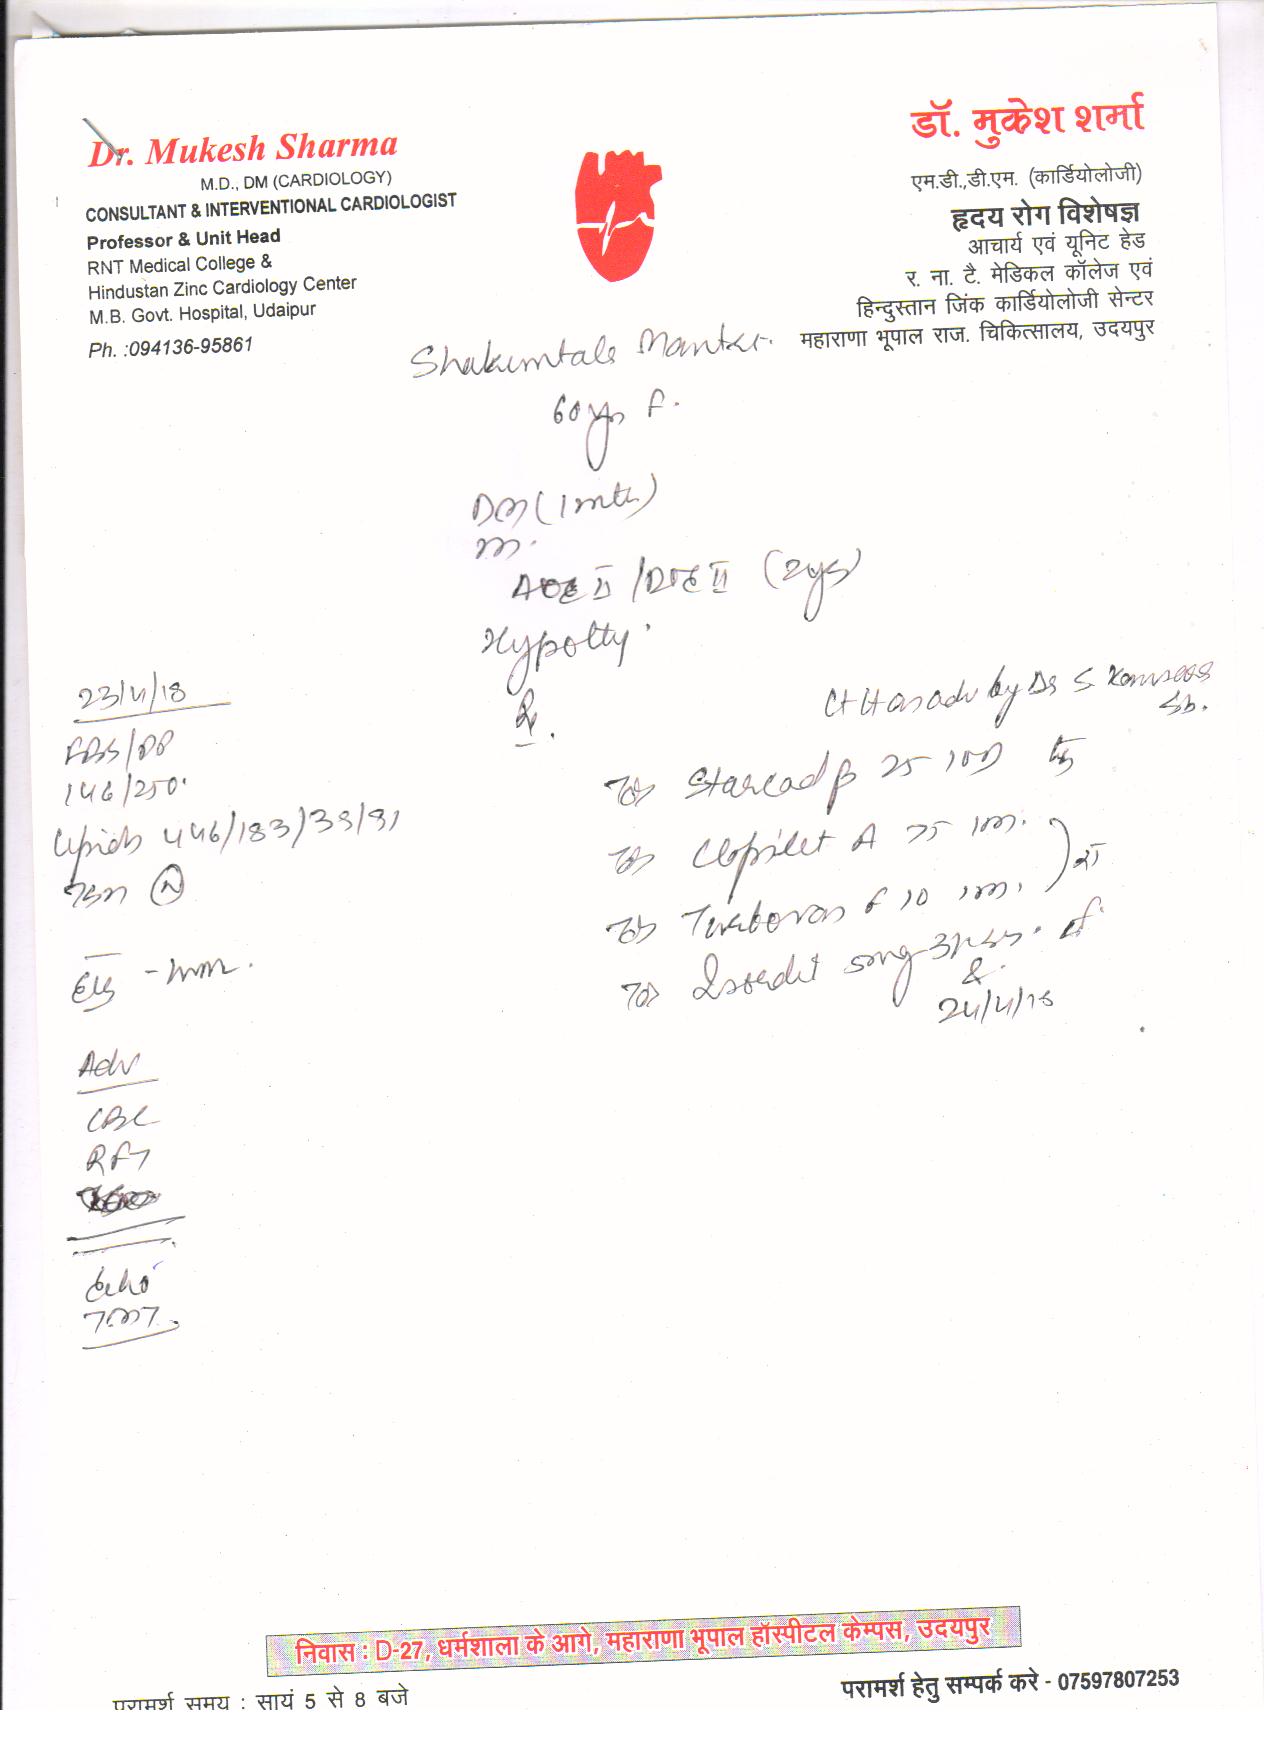 Dr. Mukesh Sharma
M.D., DM (CARDIOLOGY)
CONSULTANT & INTERVENTIONAL CARDIOLOGIST
Professor & Unit Head
RNT Medical College &
Hindustan Zinc Cardiology Center
M.B. Govt. Hospital, Udaipur
Ph. :094136-95861
डॉ. मुकेश शर्मा
एम.डी.,डी.एम. (कार्डियोलोजी)
हृदय रोग विशेषज्ञ
आचार्य एवं यूनिट हेड
र. ना. टै. मेडिकल कॉलेज एवं
हिन्दुस्तान जिंक कार्डियोलोजी सेन्टर
महाराणा भूपाल राज. चिकित्सालय, उदयपुर
60 yrs F.
DM (1mth)
II / II (2yrs)
23/4/18
FBS/PP
146/250
Lipids 446/183/33/91
TSH N
Adv
CBC
RFT
Echo
TMT.
Rx.
by Dr S
Sb.
Starcad β 25 1OD
Clopilet A 75
Turbovas F 10
24/4/18
निवास : D-27, धर्मशाला के आगे, महाराणा भूपाल हॉस्पीटल केम्पस, उदयपुर
परामर्श समय : सायं 5 से 8 बजे
परामर्श हेतु सम्पर्क करे - 07597807253